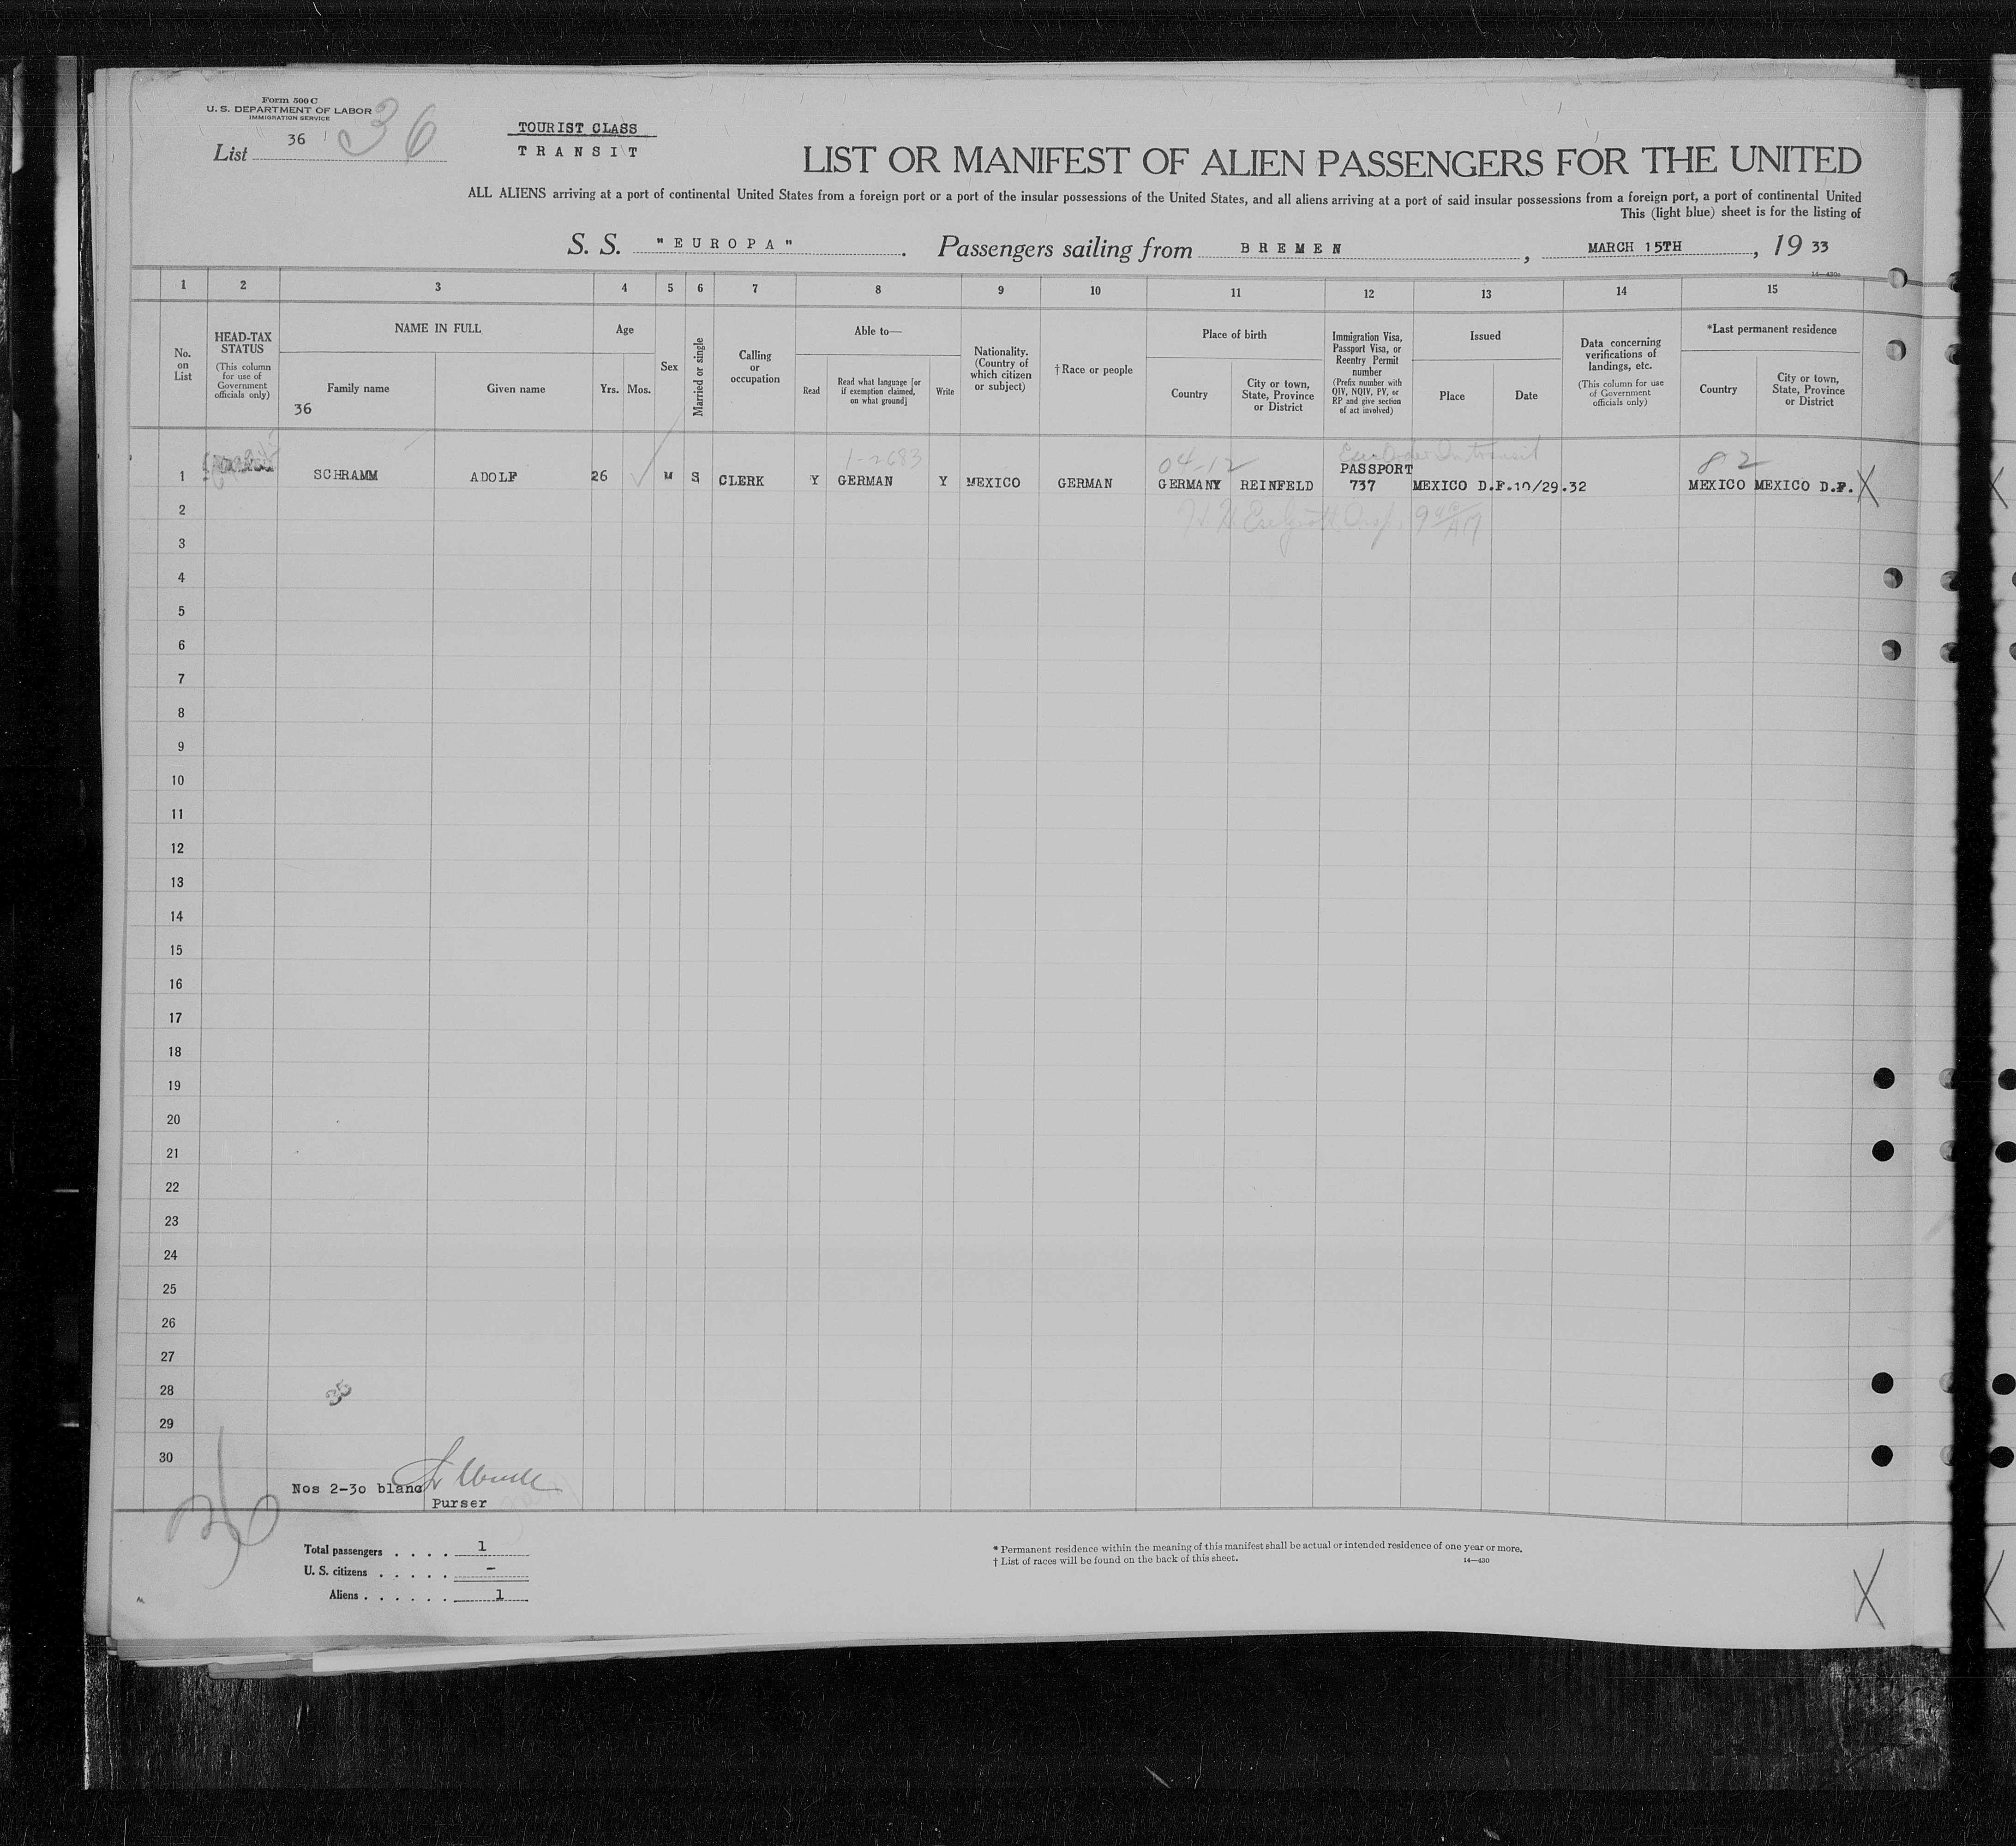 Form 500 C
U. S. DEPARTMENT OF LABOR
IMMIGRATION SERVICE
List 36 36
TOURIST CLASS
TRANSIT
LIST OR MANIFEST OF ALIEN PASSENGERS FOR THE UNITED
ALL ALIENS arriving at a port of continental United States from a foreign port or a port of the insular possessions of the United States, and all aliens arriving at a port of said insular possessions from a foreign port, a port of continental United
This (light blue) sheet is for the listing of
S. S. "EUROPA". Passengers sailing from BREMEN, MARCH 15TH, 19 33
14—430a
1 2 3 4 5 6 7 8 9 10 11 12 13 14 15
No. on List
HEAD-TAX STATUS
(This column for use of Government officials only)
NAME IN FULL
Family name
Given name
36
Age
Yrs. Mos.
Sex
Married or single
Calling or occupation
Able to—
Read
Read what language [or if exemption claimed, on what ground]
Write
Nationality. (Country of which citizen or subject)
†Race or people
Place of birth
Country
City or town, State, Province or District
Immigration Visa, Passport Visa, or Reentry Permit number
(Prefix number with QIV, NQIV, PV, or RP and give section of act involved)
Issued
Place
Date
Data concerning verifications of landings, etc.
(This column for use of Government officials only)
*Last permanent residence
Country
City or town, State, Province or District
1-2683 04-12 in transit 82
PASSPORT
1 SCHRAMM ADOLF 26 M S CLERK Y GERMAN Y MEXICO GERMAN GERMANY REINFELD 737 MEXICO D.F. 10/29.32 MEXICO MEXICO D.F. X
2
3
4
5
6
7
8
9
10
11
12
13
14
15
16
17
18
19
20
21
22
23
24
25
26
27
28
29
30
Nos 2-30 blanc
Purser
36
Total passengers . . . . 1
U. S. citizens . . . . . -
Aliens . . . . . . 1
* Permanent residence within the meaning of this manifest shall be actual or intended residence of one year or more.
† List of races will be found on the back of this sheet.
14—430
X